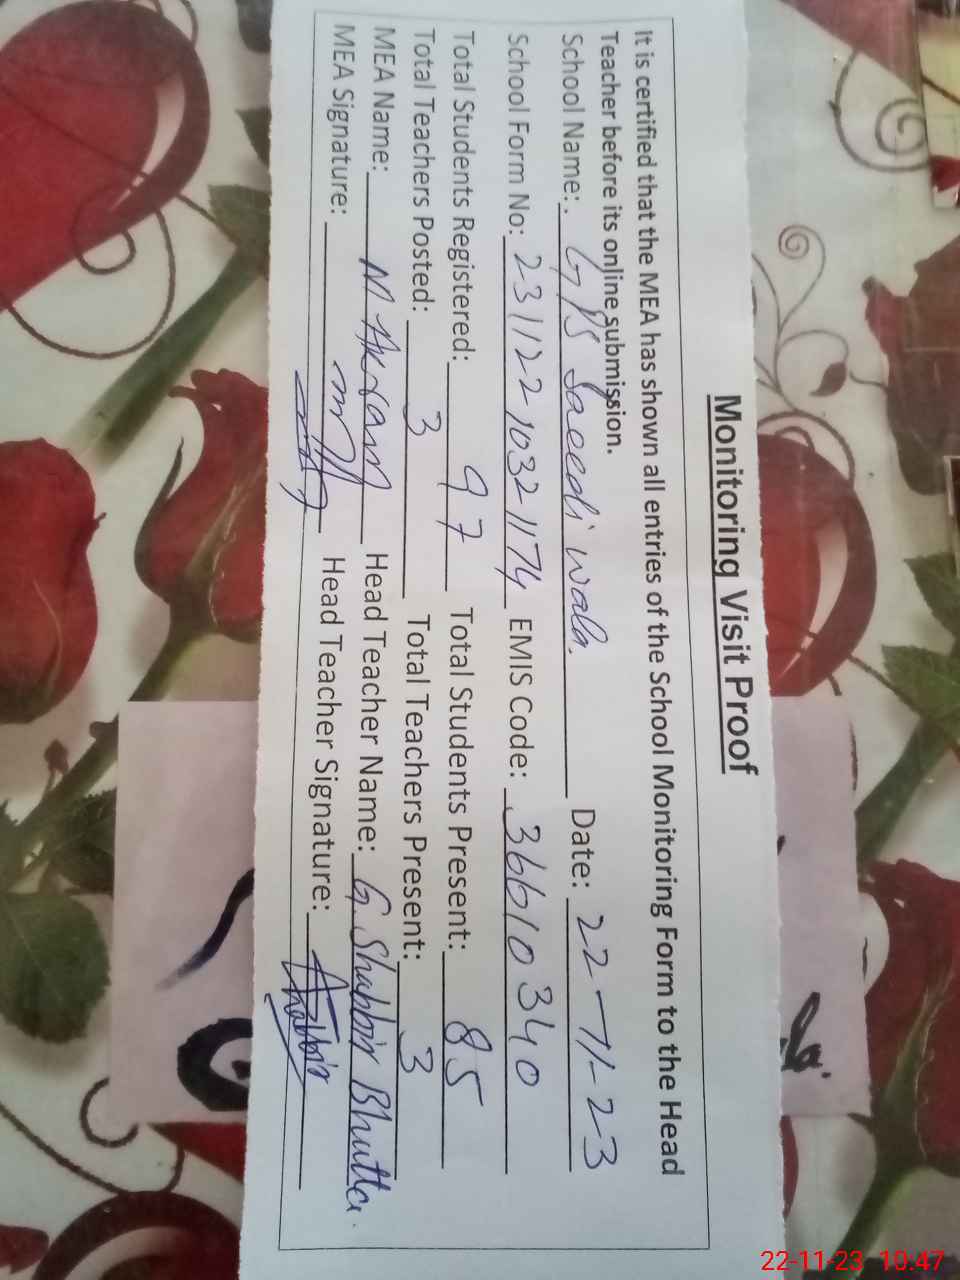 Monitoring Visit Proof
It is certified that the MEA has shown all entries of the School Monitoring Form to the Head
Teacher before its online submission.
School Name: GPS Saeedi wala. Date: 22-11-23
School Form No: 23112210321174 EMIS Code: 36610340
Total Students Registered: 97 Total Students Present: 85
Total Teachers Posted: 3 Total Teachers Present: 3
MEA Name: M Akram Head Teacher Name: G. Shabbir Bhutta.
MEA Signature: Head Teacher Signature: Shabbir
22-11-23 10:47